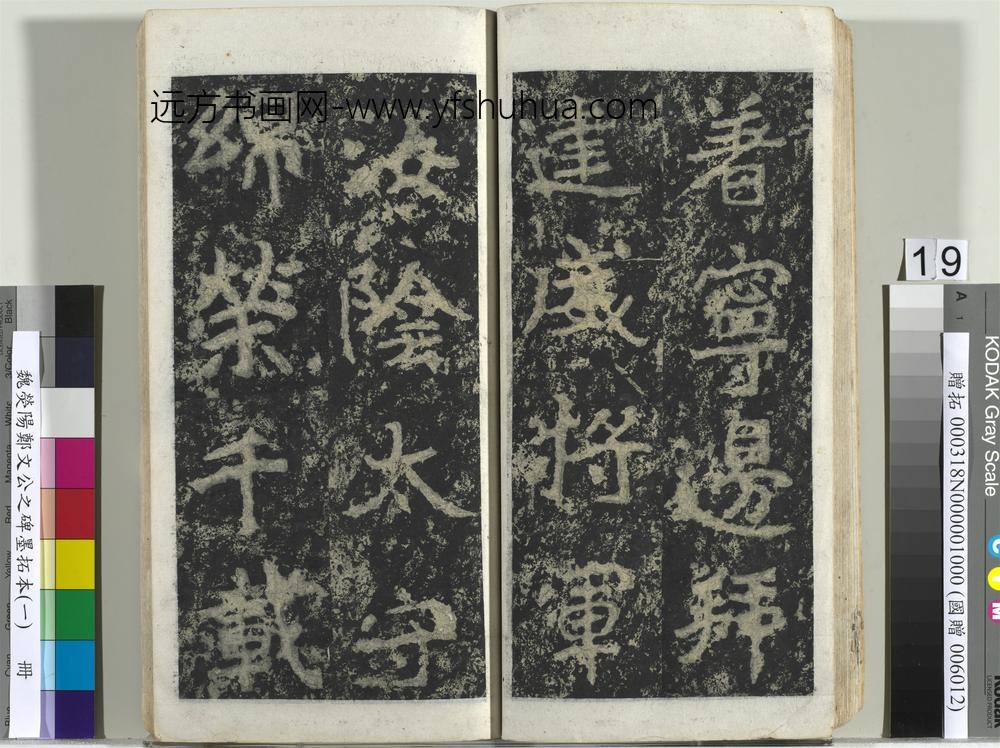 远方书画网-www.yfshuhua.com
著寧邊拜
建威將軍
汝陰太守
綿榮千載
19
魏滎陽鄭文公之碑墨拓本(一) 冊
贈拓 000318N000001000 (國贈 006012)
KODAK Gray Scale
A 1
C
Y
M
Kodak
LICENSED PRODUCT
Black
3/Color
White
Magenta
Red
Yellow
Green
Cyan
Blue